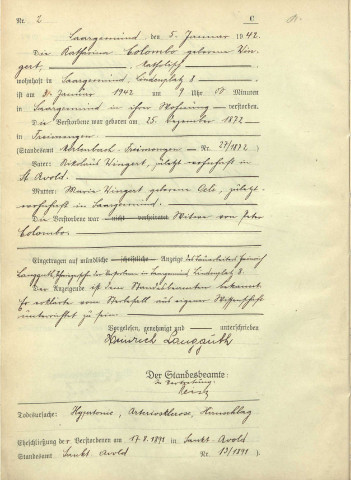 Nr. 2 C
Saargemünd, den 5. Januar 1942
Die Katharina Colombo geborene Win-
gert, katholisch
wohnhaft in Saargemünd, Lindenplatz 8
ist am Januar 1942 um 9 Uhr 00 Minuten
in Saargemünd in ihrer Wohnung verstorben.
Die Verstorbene war geboren am 25. Dezember 1872
in
(Standesamt Nr. 27/1872)
Vater: Nikolaus Wingert, zuletzt wohnhaft in
St. Avold.
Mutter: Maria Wingert geborene, zuletzt
wohnhaft in Saargemünd.
Die Verstorbene war nicht verheiratet Witwe von Peter
Colombo.
Eingetragen auf mündliche schriftliche Anzeige des Heinrich
Langguth, in Saargemünd Lindenplatz 8.
Der Anzeigende ist dem Standesbeamten bekannt.
Er erklärte vom Sterbefall aus eigener Wissenschaft
unterrichtet zu sein.
Vorgelesen, genehmigt und unterschrieben
Heinrich Langguth
Der Standesbeamte:
In Vertretung:
Todesursache: Hypertonie, Arteriosklerose, Hirnschlag
Eheschließung der Verstorbenen am 17.8.1891 in Sankt-Avold
Standesamt Sankt Avold Nr. 13/1891)